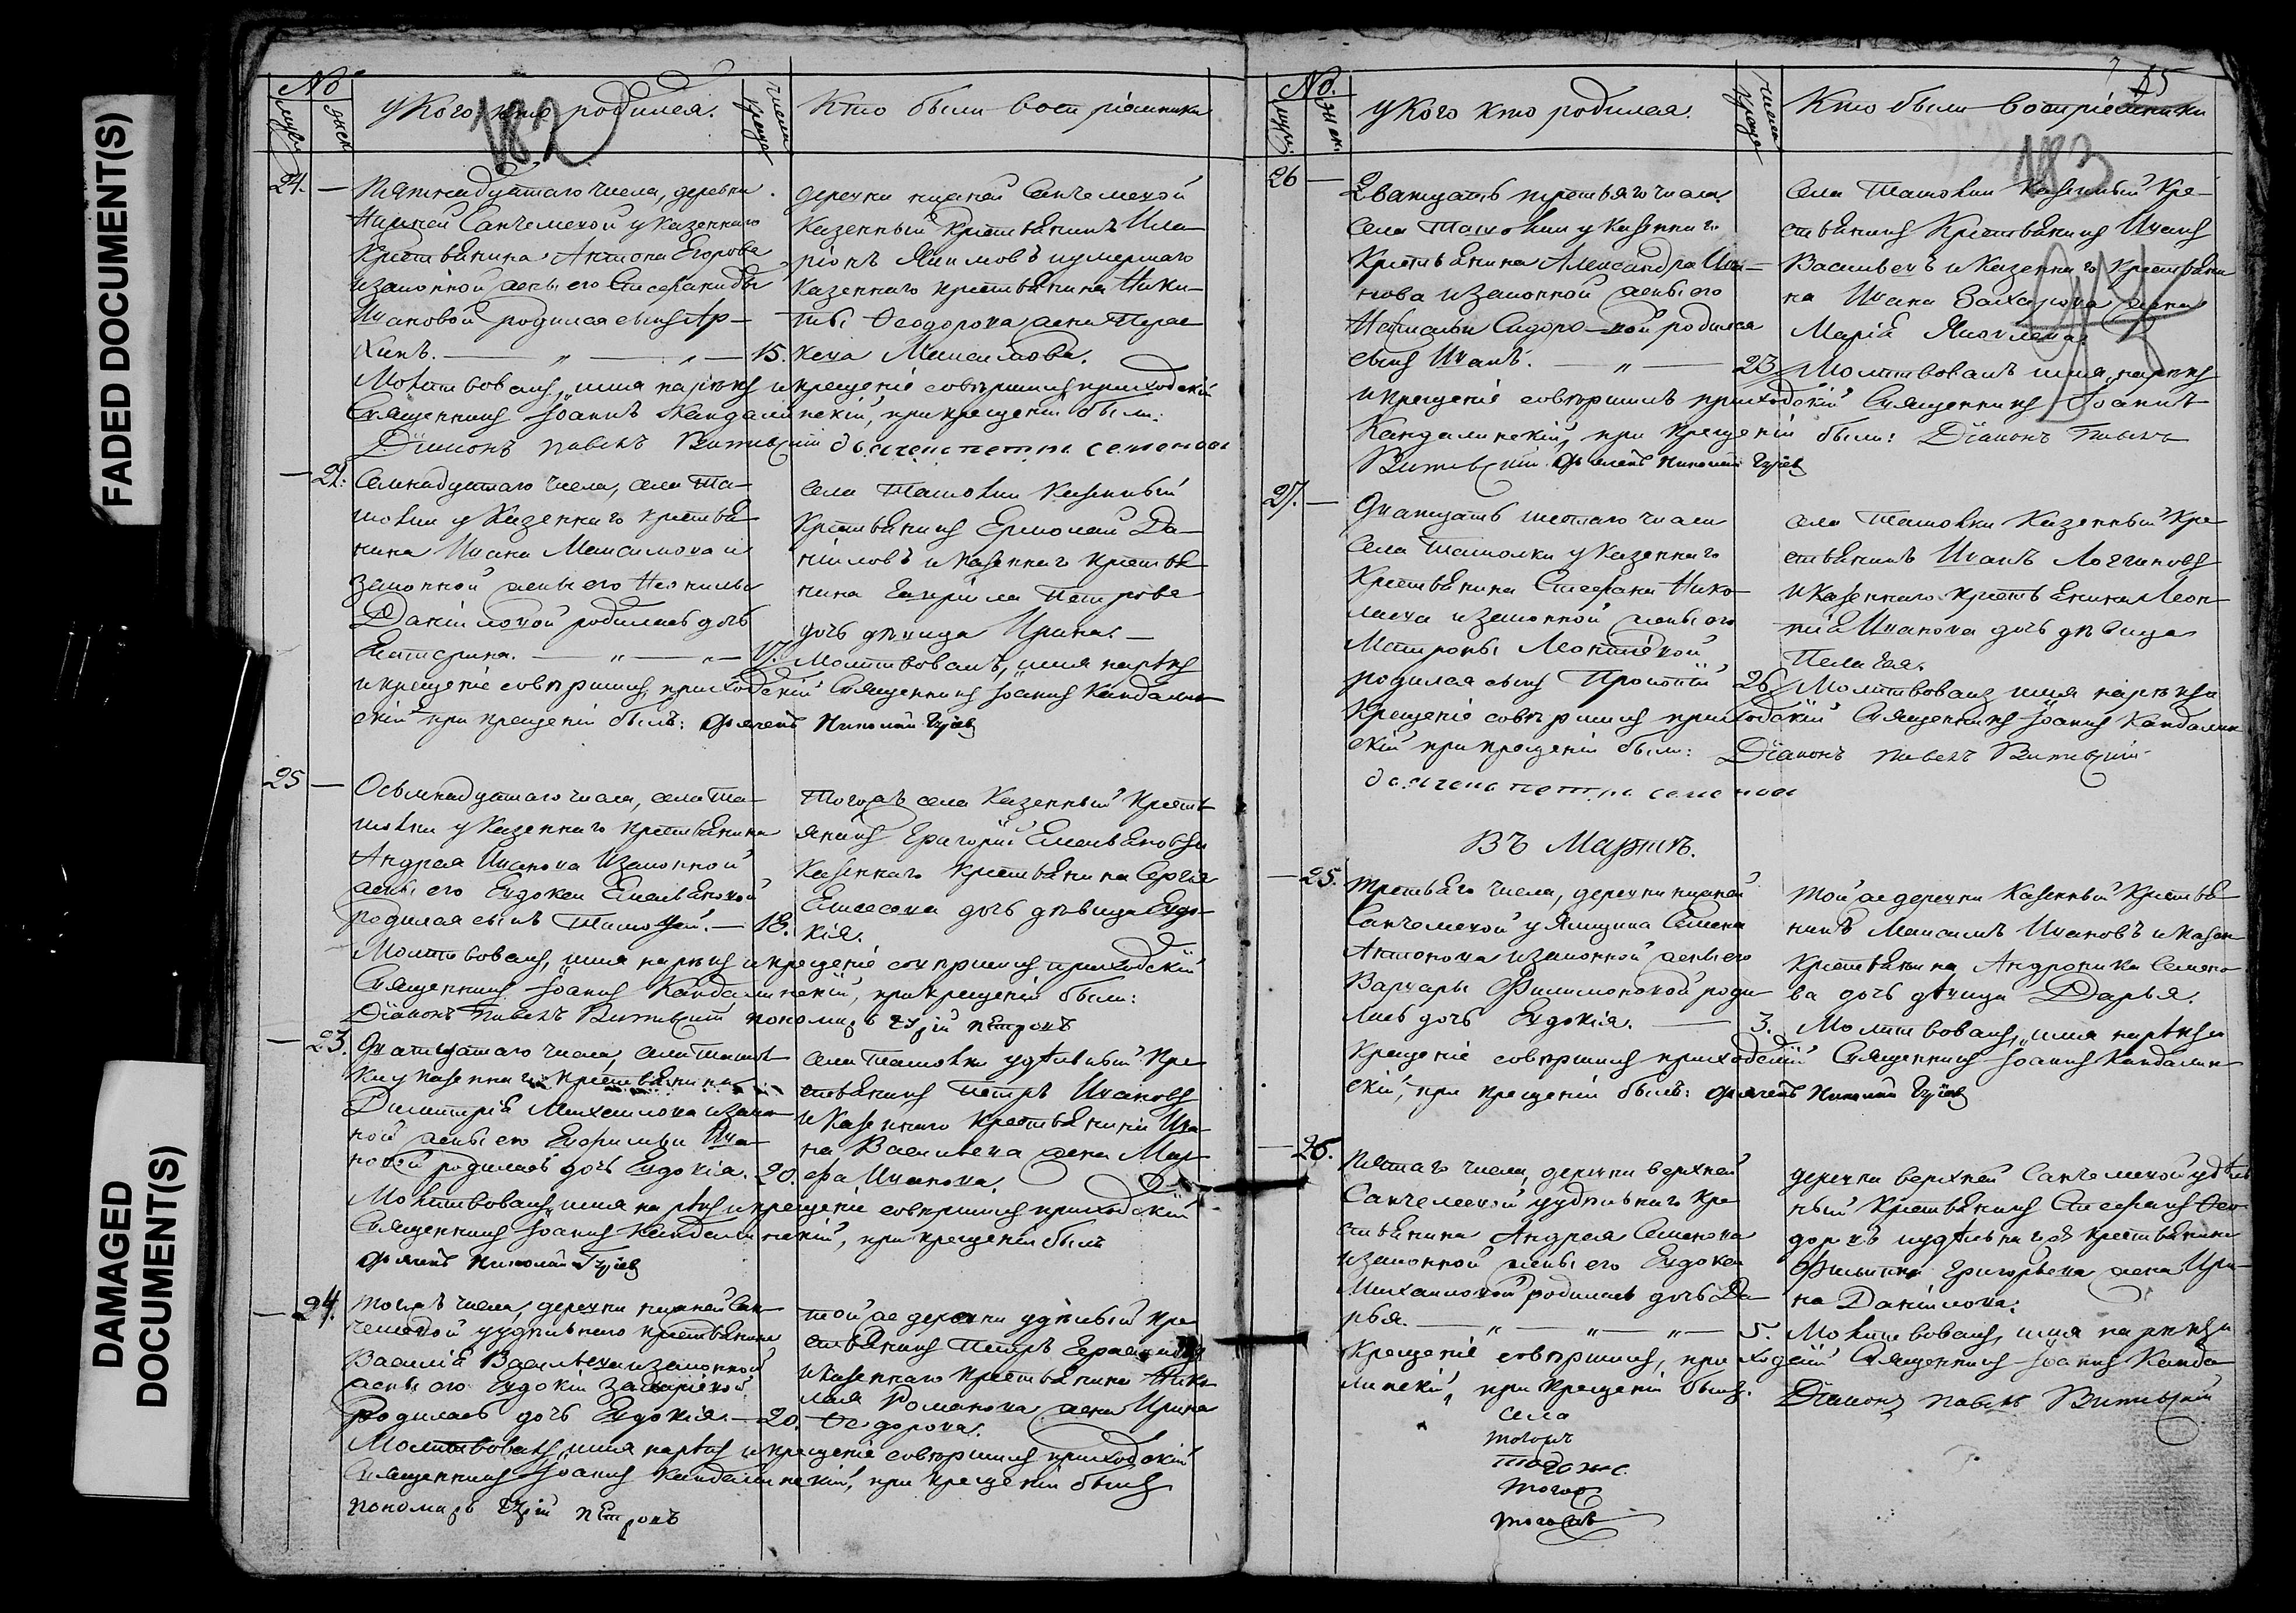 FADED DOCUMENT(S)
DAMAGED
DOCUMENT(S)
№
муж. женс.
у Кого кто родился.
числа крещ.
Кто были воспріемники
182
24. — Пятнадцатаго числа, деревни
Нижней Санчелеевой у казеннаго
Крестьянина Антона Егорова
и законной жены его Степаниды
Ивановой родился сынъ Ар-
хипъ. — „ — „ — 15.
деревни нижней Санчелеевой
Казенный Крестьянинъ Ила-
ріонъ Якимовъ и умершаго
Казеннаго крестьянина Ники-
ты Ѳеодорова жена Парас-
кева Максимова.
Молитвовалъ, имя нарекъ и крещеніе совершилъ приходскій
Священникъ Іоаннъ Кандалинскій, при крещеніи были:
Діаконъ Павелъ Витевскій дьячекъ петръ семеновъ
— 21. Семнадцатаго числа, села Та-
шовки у Казеннаго крестья-
нина Ивана Максимова и
законной жены его Неонилы
Даніиловой родилась дочь
Екатерина. — „ — „ — 17.
села Ташовки Казенный
Крестьянинъ Ермолай Да-
ніиловъ и казеннаго крестья-
нина Гавріила Петрова
дочь дѣвица Ирина. —
Молитвовалъ, имя нарекъ
и крещеніе совершилъ, приходскій Священникъ Іоаннъ Кандалин-
скій при крещеніи былъ: дьячекъ Николай Гурьев
25 — Осьмнадцатаго числа, села Та-
шовки у Казеннаго крестьянина
Андрея Иванова и законной
жены его Евдокеи Емельяновой
родился сынъ Тимофей. — 18.
Тогожъ села Казенный Кресть-
янинъ Григорій Емельяновъ и
Казеннаго Крестьянина Сергѣя
Елисеева дочь дѣвица Евдо-
кія.
Молитвовалъ, имя нарекъ и крещеніе совершилъ приходскій
Священникъ Іоаннъ Кандалинскій, при крещеніи были:
Діаконъ Павелъ Витевскій пономарь Гурій Петровъ
— 23. Двадцатаго числа, села Ташов-
ки у казеннаго крестьянина
Димитрія Михаилова и закон-
ной жены его Евфимьи Ива-
новой родилась дочь Евдокія. 20.
села Ташовки удѣльный Кре-
стьянинъ Петръ Ивановъ
и Казеннаго Крестьянина Ива-
на Васильева жена Мар-
фа Иванова.
Молитвовалъ, имя нарекъ и крещеніе совершилъ приходскій
Священникъ Іоаннъ Кандалинскій, при крещеніи былъ
дьячекъ Николай Гурьев
— 24. Тогожъ числа, деревни нижней Сан-
челеевой у удѣльнаго крестьянина
Василія Васильева и законной
жены его Евдокіи Захаріевой
Родилась дочь Евдокія. — 20.
той же деревни удѣльный Кре-
стьянинъ Петръ
и казеннаго крестьянина Нико-
лая Романова жена Ирина
Ѳеодорова.
Молитвовалъ, имя нарекъ и крещеніе совершилъ приходскій
Священникъ Іоаннъ Кандалинскій, при крещеніи былъ
пономарь Гурій Петровъ
№.
муж. жен.
у Кого кто родился.
числа крещ.
Кто были воспріемники
55
183
26 — Двадцать третьяго числа
села Ташовки у Казеннаго
Крестьянина Александра Ива-
нова и законной жены его
Натальи Сидоровой родился
сынъ Иванъ. — „ — 23.
села Ташовки Казенный Кре-
стьянинъ Крестьянинъ Иванъ
Васильевъ и Казеннаго Крестьяни-
на Ивана Захарова жена
Марія Яковлева.
Молитвовалъ имя нарекъ
и крещеніе совершилъ приходскій Священникъ Іоаннъ
Кандалинскій, при крещеніи были: Діаконъ Павелъ
Витевскій дьячекъ Николай Гурьев
27. — Двадцать шестаго числа
Села Ташовки у Казеннаго
Крестьянина Стефана Нико-
лаева и законной жены его
Матроны Леонтьевой
родился сынъ Прокопій 26.
села Ташовки Казенный Кре-
стьянинъ Иванъ Логгиновъ
и Казеннаго крестьянина Леон-
тія Иванова дочь дѣвица
Пелагея.
Молитвовалъ имя нарекъ и
Крещеніе совершилъ приходскій Священникъ Іоаннъ Кандалин-
скій при крещеніи были: Діаконъ Павелъ Витевскій
дьячекъ петръ семеновъ
Въ Мартѣ.
— 25. Третьяго числа, деревни нижней
Санчелеевой у Ямщика Семена
Антонова и законной жены его
Варвары Филимоновой роди-
лась дочь Евдокія. — 3.
той же деревни Казенный Крестья-
нинъ Максимъ Ивановъ и казен-
Крестьянина Андроника Семено-
ва дочь дѣвица Дарья.
Молитвовалъ, имя нарекъ и
Крещеніе совершилъ приходскій Священникъ Іоаннъ Кандалин-
скій, при крещеніи былъ: дьячекъ Николай Гурьев
— 26. Пятаго числа, деревни верхней
Санчелеевой у удѣльнаго Кре-
стьянина Андрея Семенова
и законной жены его Евдокеи
Михаиловой родилась дочь Да-
рья. — „ — „ — „ — 5.
деревни верхней Санчелеевой удѣль-
ный Крестьянинъ Стефанъ Ѳео-
доровъ и удѣльнаго Крестьянина
Филиппа Григорьева жена Ири-
на Даніилова.
Молитвовалъ, имя нарекъ и
Крещеніе совершилъ, приходскій Священникъ Іоаннъ Канда-
линскій, при крещеніи былъ. Діаконъ Павелъ Витевскій
Села
тогожъ
тогоже.
тогож
тогожъ